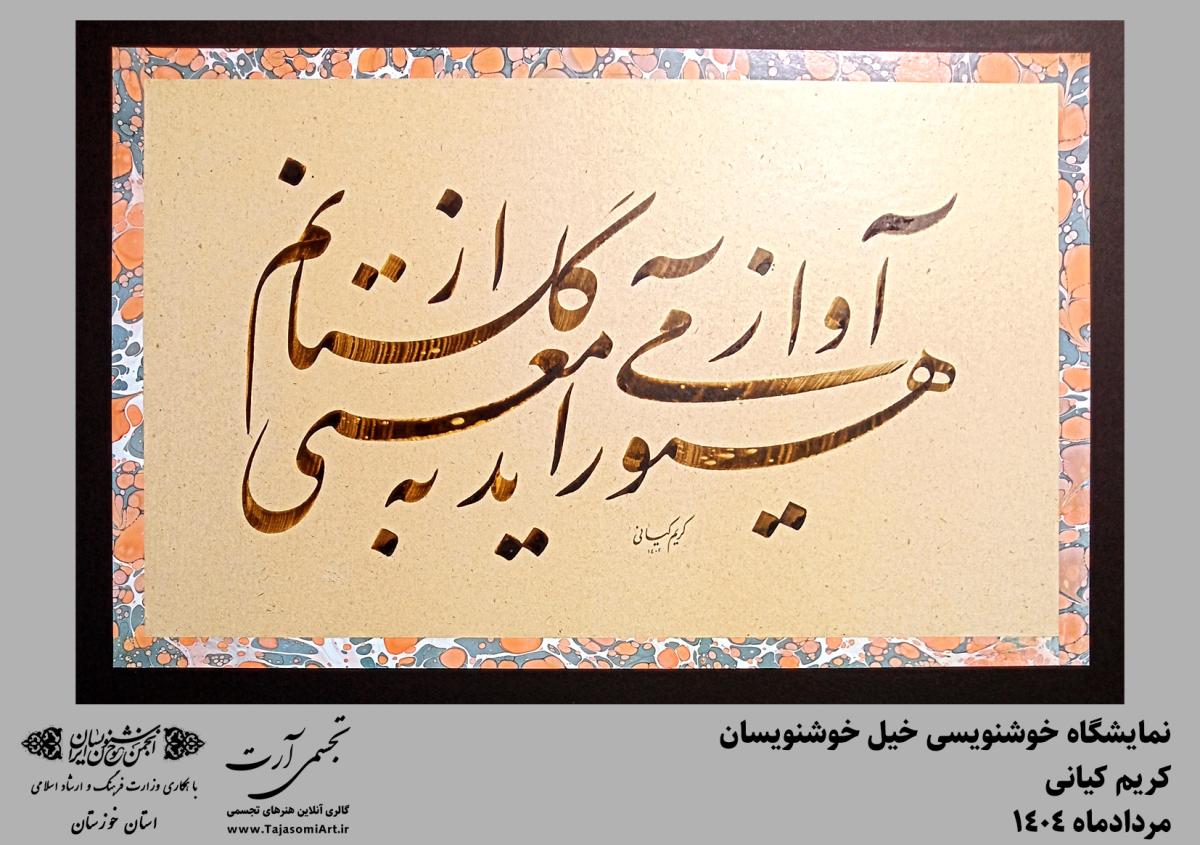 هنوز آواز می آید به معنی از گلستانم
کریم کیانی
۱۴۰۲
نمایشگاه خوشنویسی خیل خوشنویسان
کریم کیانی
مردادماه ۱٤۰٤
تجسمی آرت
گالری آنلاین هنرهای تجسمی
www.TajasomiArt.ir
انجمن خوشنویسان ایران
با همکاری وزارت فرهنگ و ارشاد اسلامی
استان خوزستان